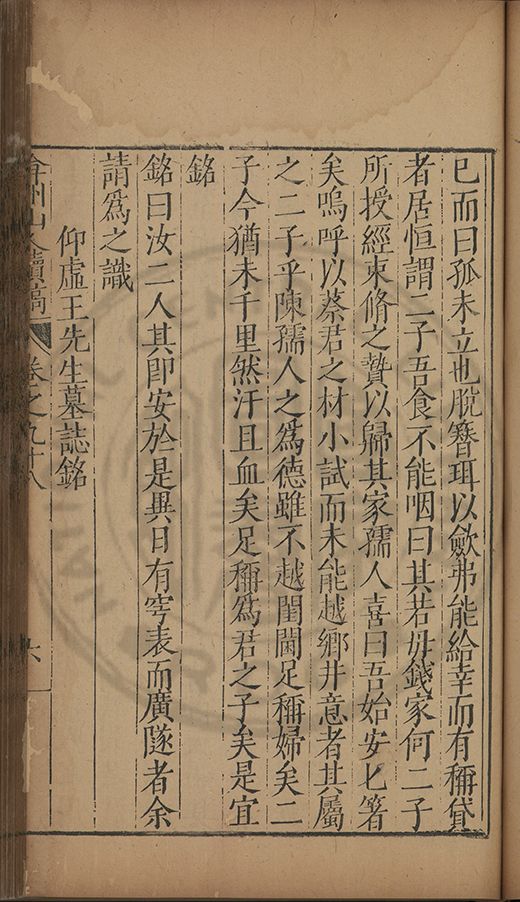 已而曰孤未立也脫簪珥以斂弗能給幸而有稱貸
者居恒謂二子吾食不能咽曰其若毋錢家何二子
所授經束脩之贄以歸其家孺人喜曰吾始安匕箸
矣嗚呼以蔡君之材小試而未能越鄉井意者其屬
之二子乎陳孺人之為德雖不越閨閫足稱婦矣二
子今猶未千里然汗且血矣足稱為君之子矣是宜
銘
銘曰汝二人其即安於是異日有穹表而廣隧者余
請為之識
仰虛王先生墓誌銘
弇州山人續稿
卷之九十八
六